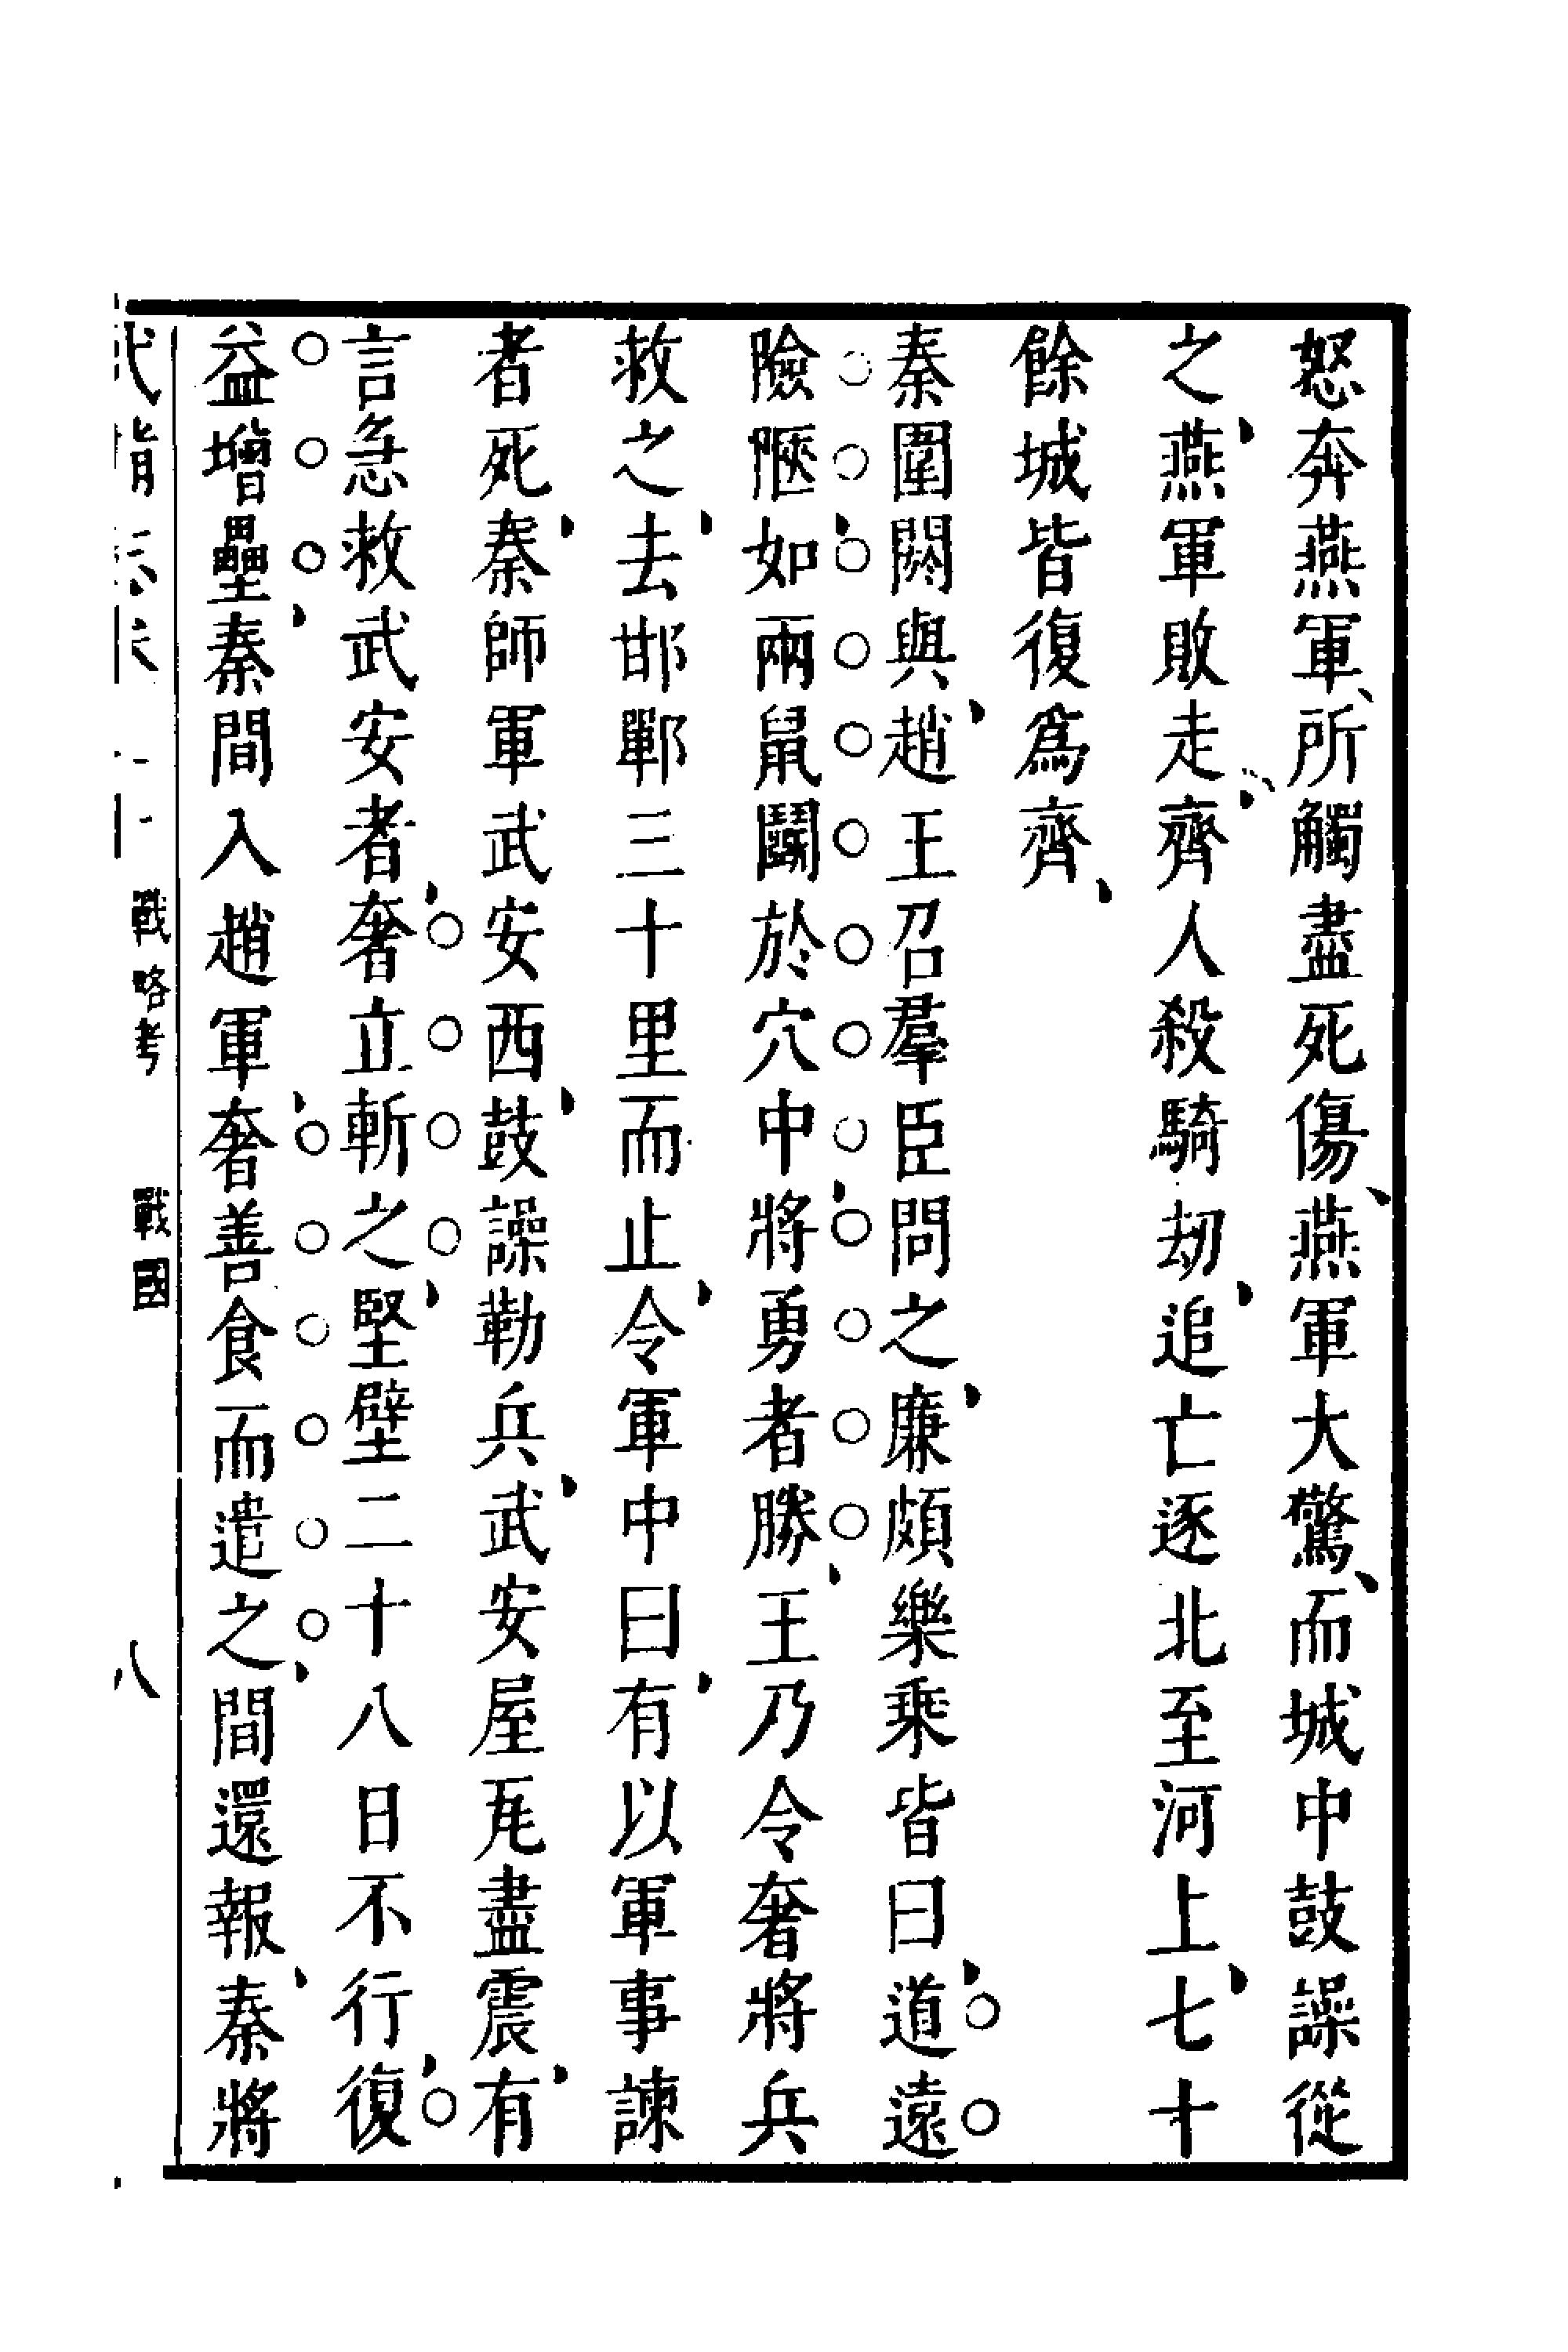 怒奔燕軍、所觸盡死傷、燕軍大驚、而城中鼓譟從
之、燕軍敗走、齊人殺騎劫、追亡逐北至河上、七十
餘城皆復爲齊、
秦圍閼與、趙王召羣臣問之、廉頗樂乘皆曰、道遠
險陿、如兩鼠鬭於穴中、將勇者勝、王乃令奢將兵
救之、去邯鄲三十里而止、令軍中曰、有以軍事諫
者死、秦師軍武安西、鼓譟勒兵、武安屋瓦盡震、有
言急救武安者、奢立斬之、堅壁二十八日不行、復
益增壘、秦間入趙軍、奢善食而遣之、間還報、秦將
武備志卷 戰略考 戰國 八